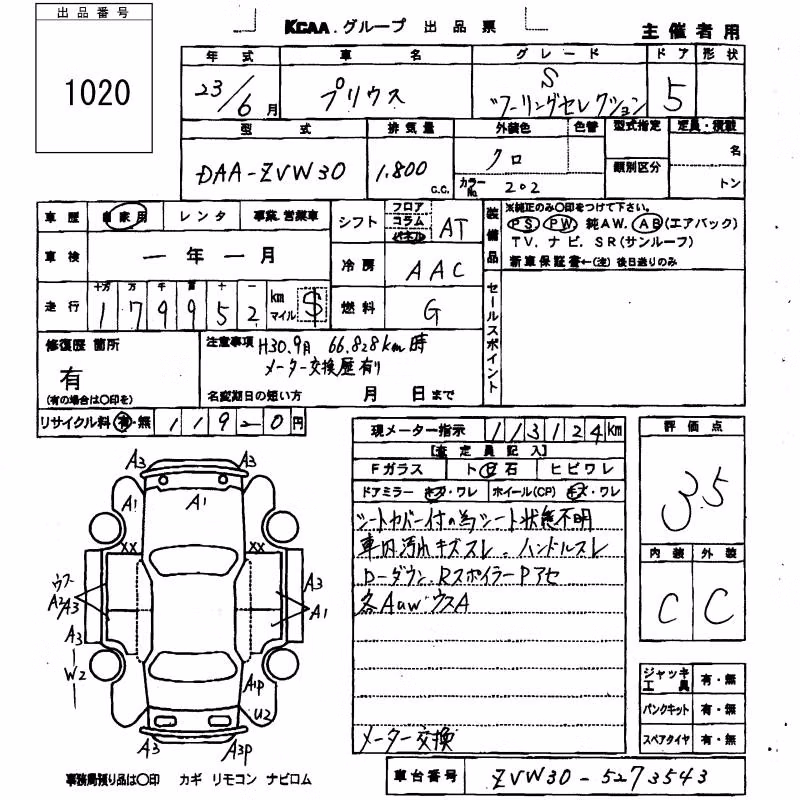 出品番号
1020
KCAA.グループ 出品票
主催者用
年式 車名 グレード ドア 形状
23/6月 プリウス S ツーリングセレクション 5
型式 排気量 外装色 色替 型式指定 定員・積載
DAA-ZVW30 1.800 c.c. クロ 類別区分 名
カラーNo. 202 トン
車歴 自家用 レンタ 事業.営業車
シフト フロア コラム パネル AT
装備品
※純正のみ○印をつけて下さい。
PS PW 純AW. AB(エアバック)
TV. ナビ. SR(サンルーフ)
新車保証書←(注)後日送りのみ
車検 ー年ー月
冷房 AAC
走行 十万 万 千 百 十 一
179952 km マイル $
燃料 G
セールスポイント
修復歴 箇所
有
(有の場合は○印を)
注意事項 H30.9月 66.828km時
メーター交換歴有り
名変期日の短い方 月 日まで
リサイクル料 有・無 11920円
現メーター指示 113124km
評価点
3.5
【査定員記入】
Fガラス ト ビ石 ヒビワレ
ドアミラー キズ・ワレ ホイール(CP) キズ・ワレ
シートカバー付の為シート状態不明
車内汚れキズスレ. ハンドルスレ
ローダウン.RスポイラーPアセ
各AuwウスA
メーター交換
内装 外装
C C
ジャッキ工具 有・無
パンクキット 有・無
スペアタイヤ 有・無
A3 A3
A1 A1
XX XX
ウス A2/A3
A3
A1
A3
W2
A1P
U2
A3 A3P
事務局預り品は○印 カギ リモコン ナビロム
車台番号 ZVW30-5273543